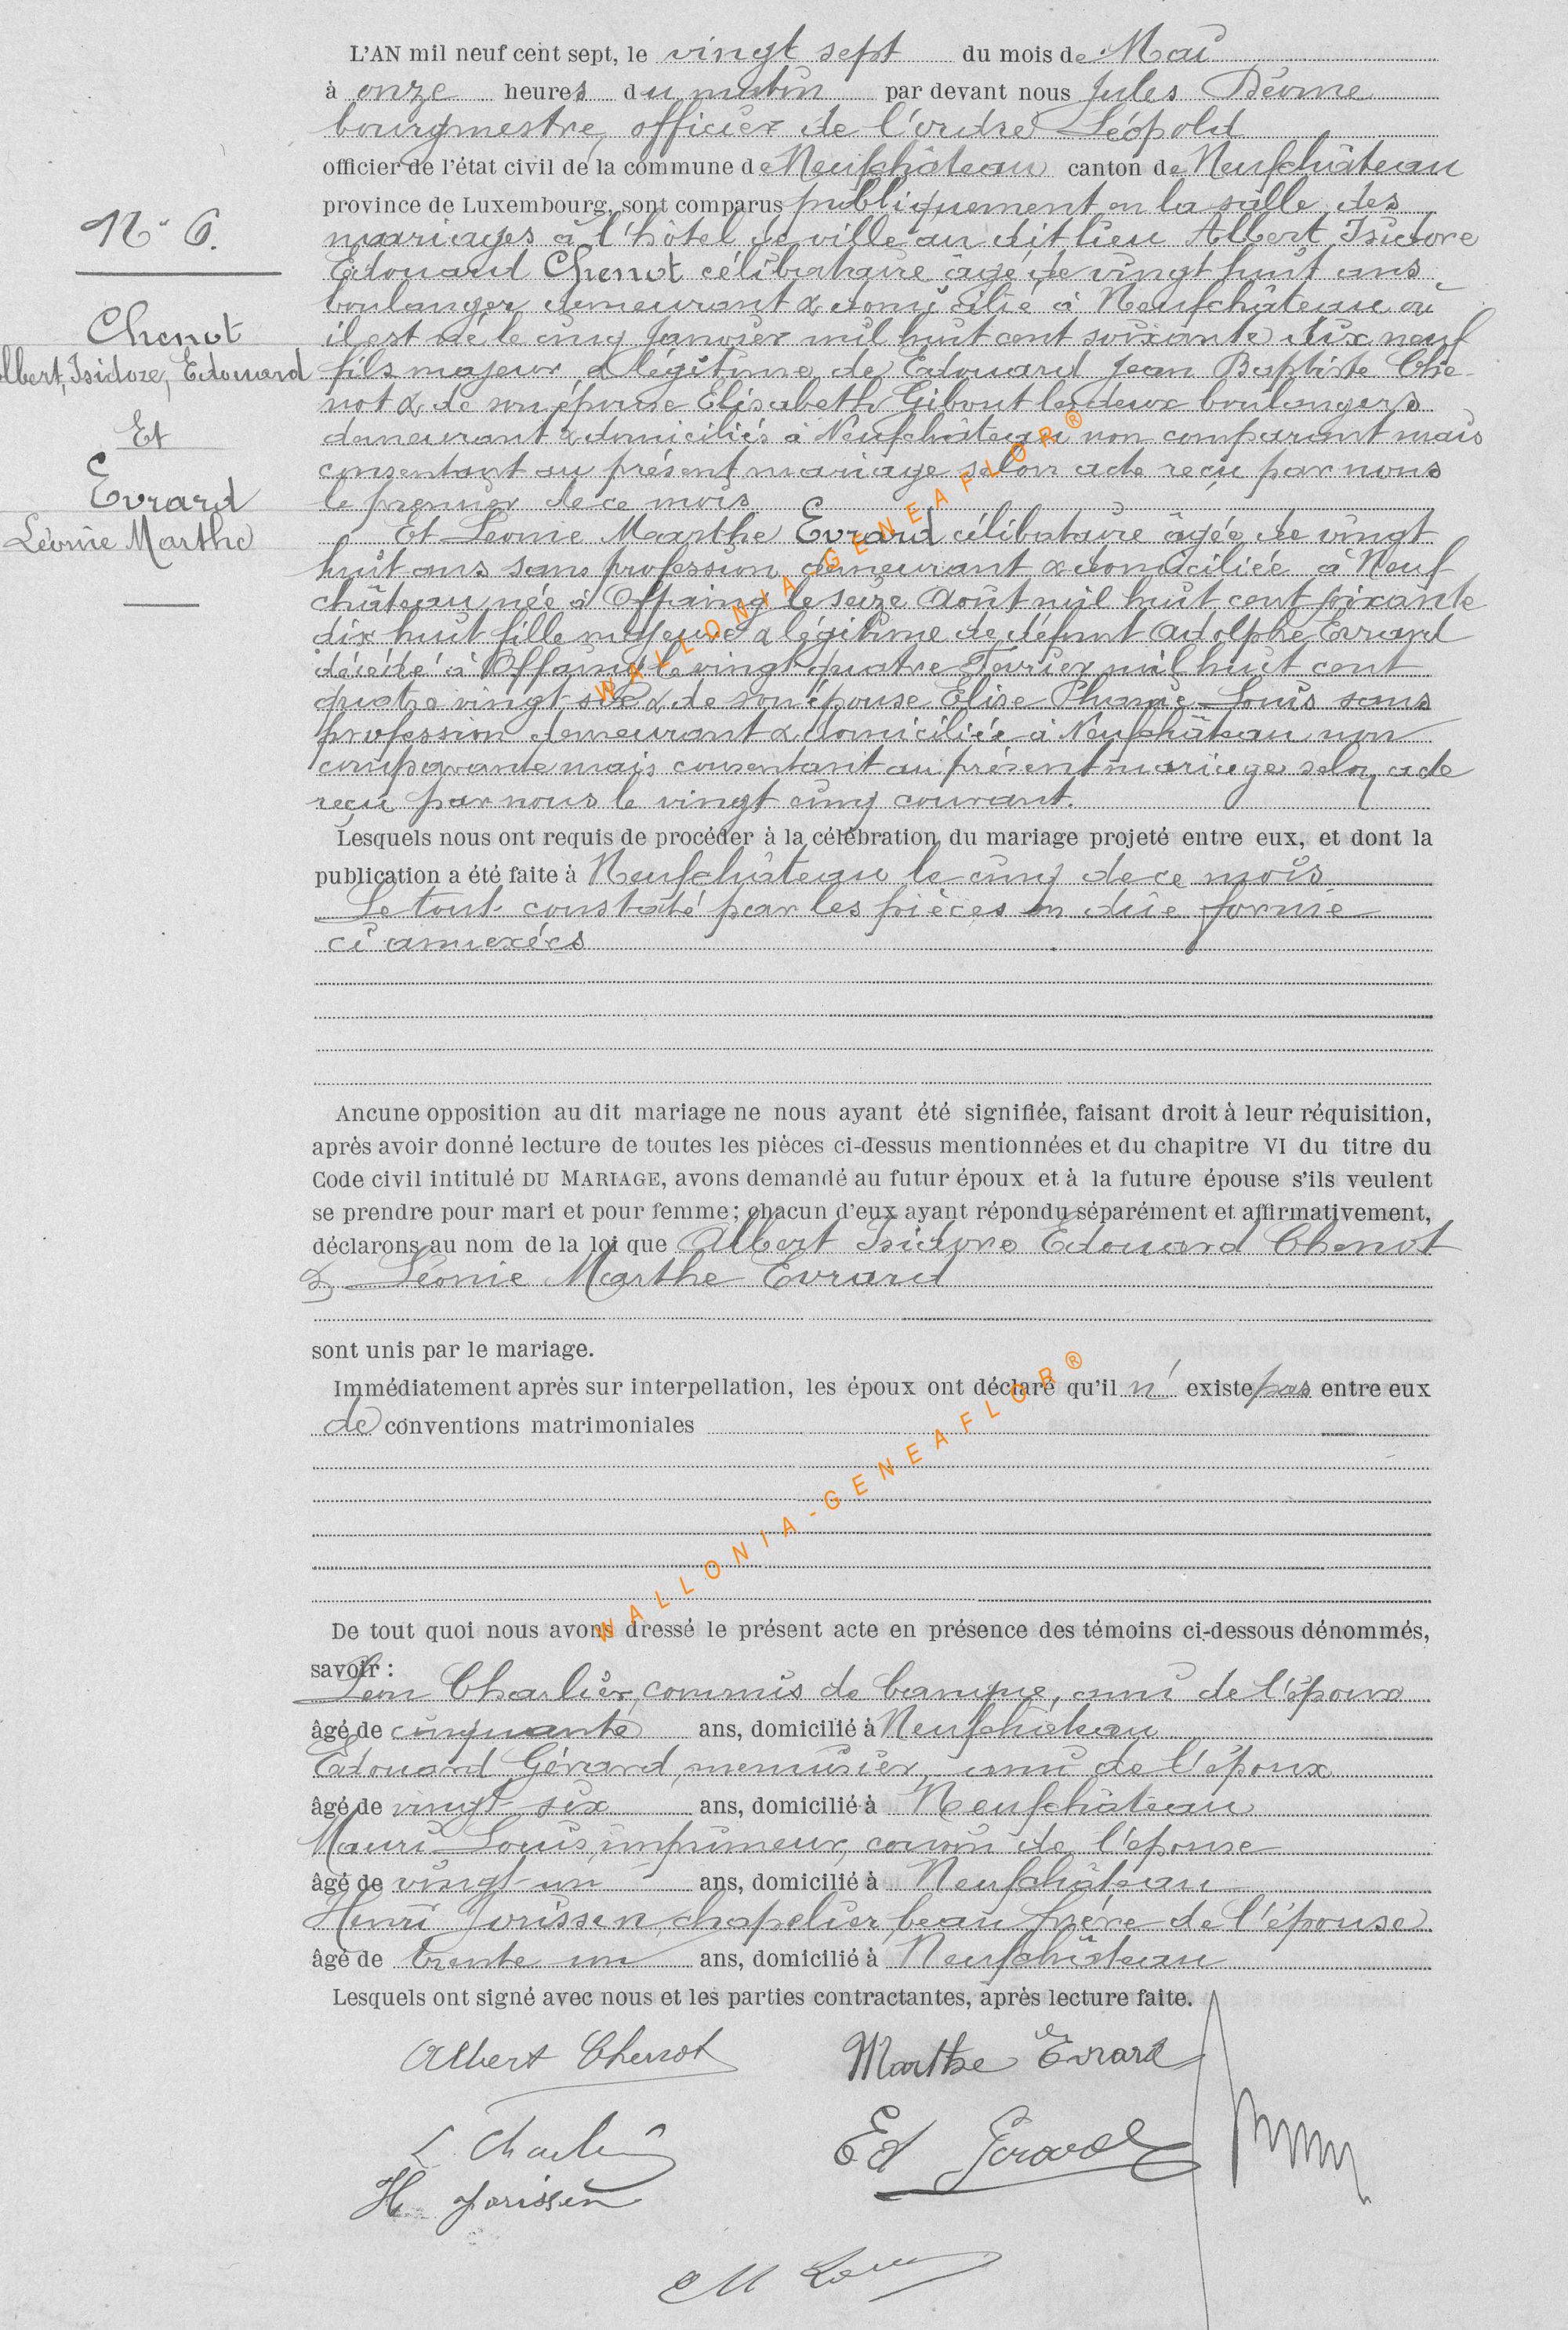 L'AN mil neuf cent sept, le vingt sept du mois de Mai
à onze heures du matin par devant nous Jules
bourgmestre, officier de l'ordre Léopold
officier de l'état civil de la commune de Neufchâteau canton de Neufchâteau
province de Luxembourg, sont comparus publiquement en la salle des
mariages à l'hôtel de ville au dit lieu Albert Isidore
Edouard Chenot célibataire âgé de vingt huit ans
boulanger demeurant & domicilié à Neufchâteau où
il est né le cinq Janvier mil huit cent soixante dix neuf
fils majeur & légitime de Edouard Jean Baptiste Che-
not & de son épouse Elisabeth Gibout les deux boulangers
demeurant & domiciliés à Neufchâteau non comparant mais
consentant au présent mariage selon acte reçu par nous
le premier de ce mois
Et Leonie Marthe Evrard célibataire âgée de vingt
huit ans sans profession demeurant & domiciliée à Neuf
château née à Offaing le seize Août mil huit cent soixante
dix huit fille majeure & légitime de défunt Adolphe Evrard
décédé à Offaing le vingt quatre Fevrier mil huit cent
quatre vingt six & de son épouse Elise Louis sans
profession demeurant & domiciliée à Neufchâteau non
comparante mais consentant au présent mariage selon acte
reçu par nous le vingt cinq courant.
Lesquels nous ont requis de procéder à la célébration du mariage projeté entre eux, et dont la
publication a été faite à Neufchâteau le cinq de ce mois
Le tout constaté par les pièces en dûe forme
ci annexées
Ancune opposition au dit mariage ne nous ayant été signifiée, faisant droit à leur réquisition,
après avoir donné lecture de toutes les pièces ci-dessus mentionnées et du chapitre VI du titre du
Code civil intitulé DU MARIAGE, avons demandé au futur époux et à la future épouse s'ils veulent
se prendre pour mari et pour femme; chacun d'eux ayant répondu séparément et affirmativement,
déclarons au nom de la loi que Albert Isidore Edouard Chenot
& Léonie Marthe Evrard
sont unis par le mariage.
Immédiatement après sur interpellation, les époux ont déclaré qu'il n' existe pas entre eux
de conventions matrimoniales
De tout quoi nous avons dressé le présent acte en présence des témoins ci-dessous dénommés,
savoir :
Léon Charlier, commis de banque, ami de l'époux
âgé de cinquante ans, domicilié à Neufchâteau
Edouard Gérard, menuisier, ami de l'époux
âgé de vingt six ans, domicilié à Neufchâteau
Louis, imprimeur, cousin de l'épouse
âgé de vingt un ans, domicilié à Neufchâteau
Henri Jorissen, chapelier, beau frère de l'épouse
âgé de trente un ans, domicilié à Neufchâteau
Lesquels ont signé avec nous et les parties contractantes, après lecture faite.
Albert Chenot
Marthe Evrard
L. Charlier
Ed Gérard
H. Jorissen
M Louis
N° 6.
Chenot
Albert, Isidore, Edouard
Et
Evrard
Léonie Marthe
WALLONIA-GENEAFLOR®
WALLONIA-GENEAFLOR®